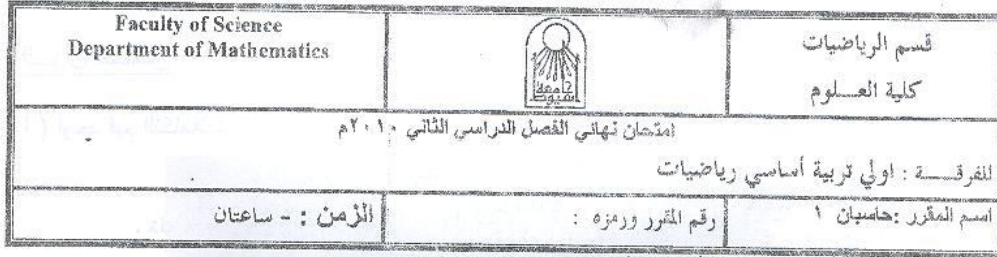 Faculty of Science
Department of Mathematics
جامعة
أسيوط
قسم الرياضيات
كلية العـــلوم
امتحان نهائي الفصل الدراسي الثاني ٢٠١٠م
للفرقـــــة : اولي تربية أساسي رياضيات
اسم المقرر :حاسبان ١
رقم المقرر ورمزه :
الزمن : - ساعتان